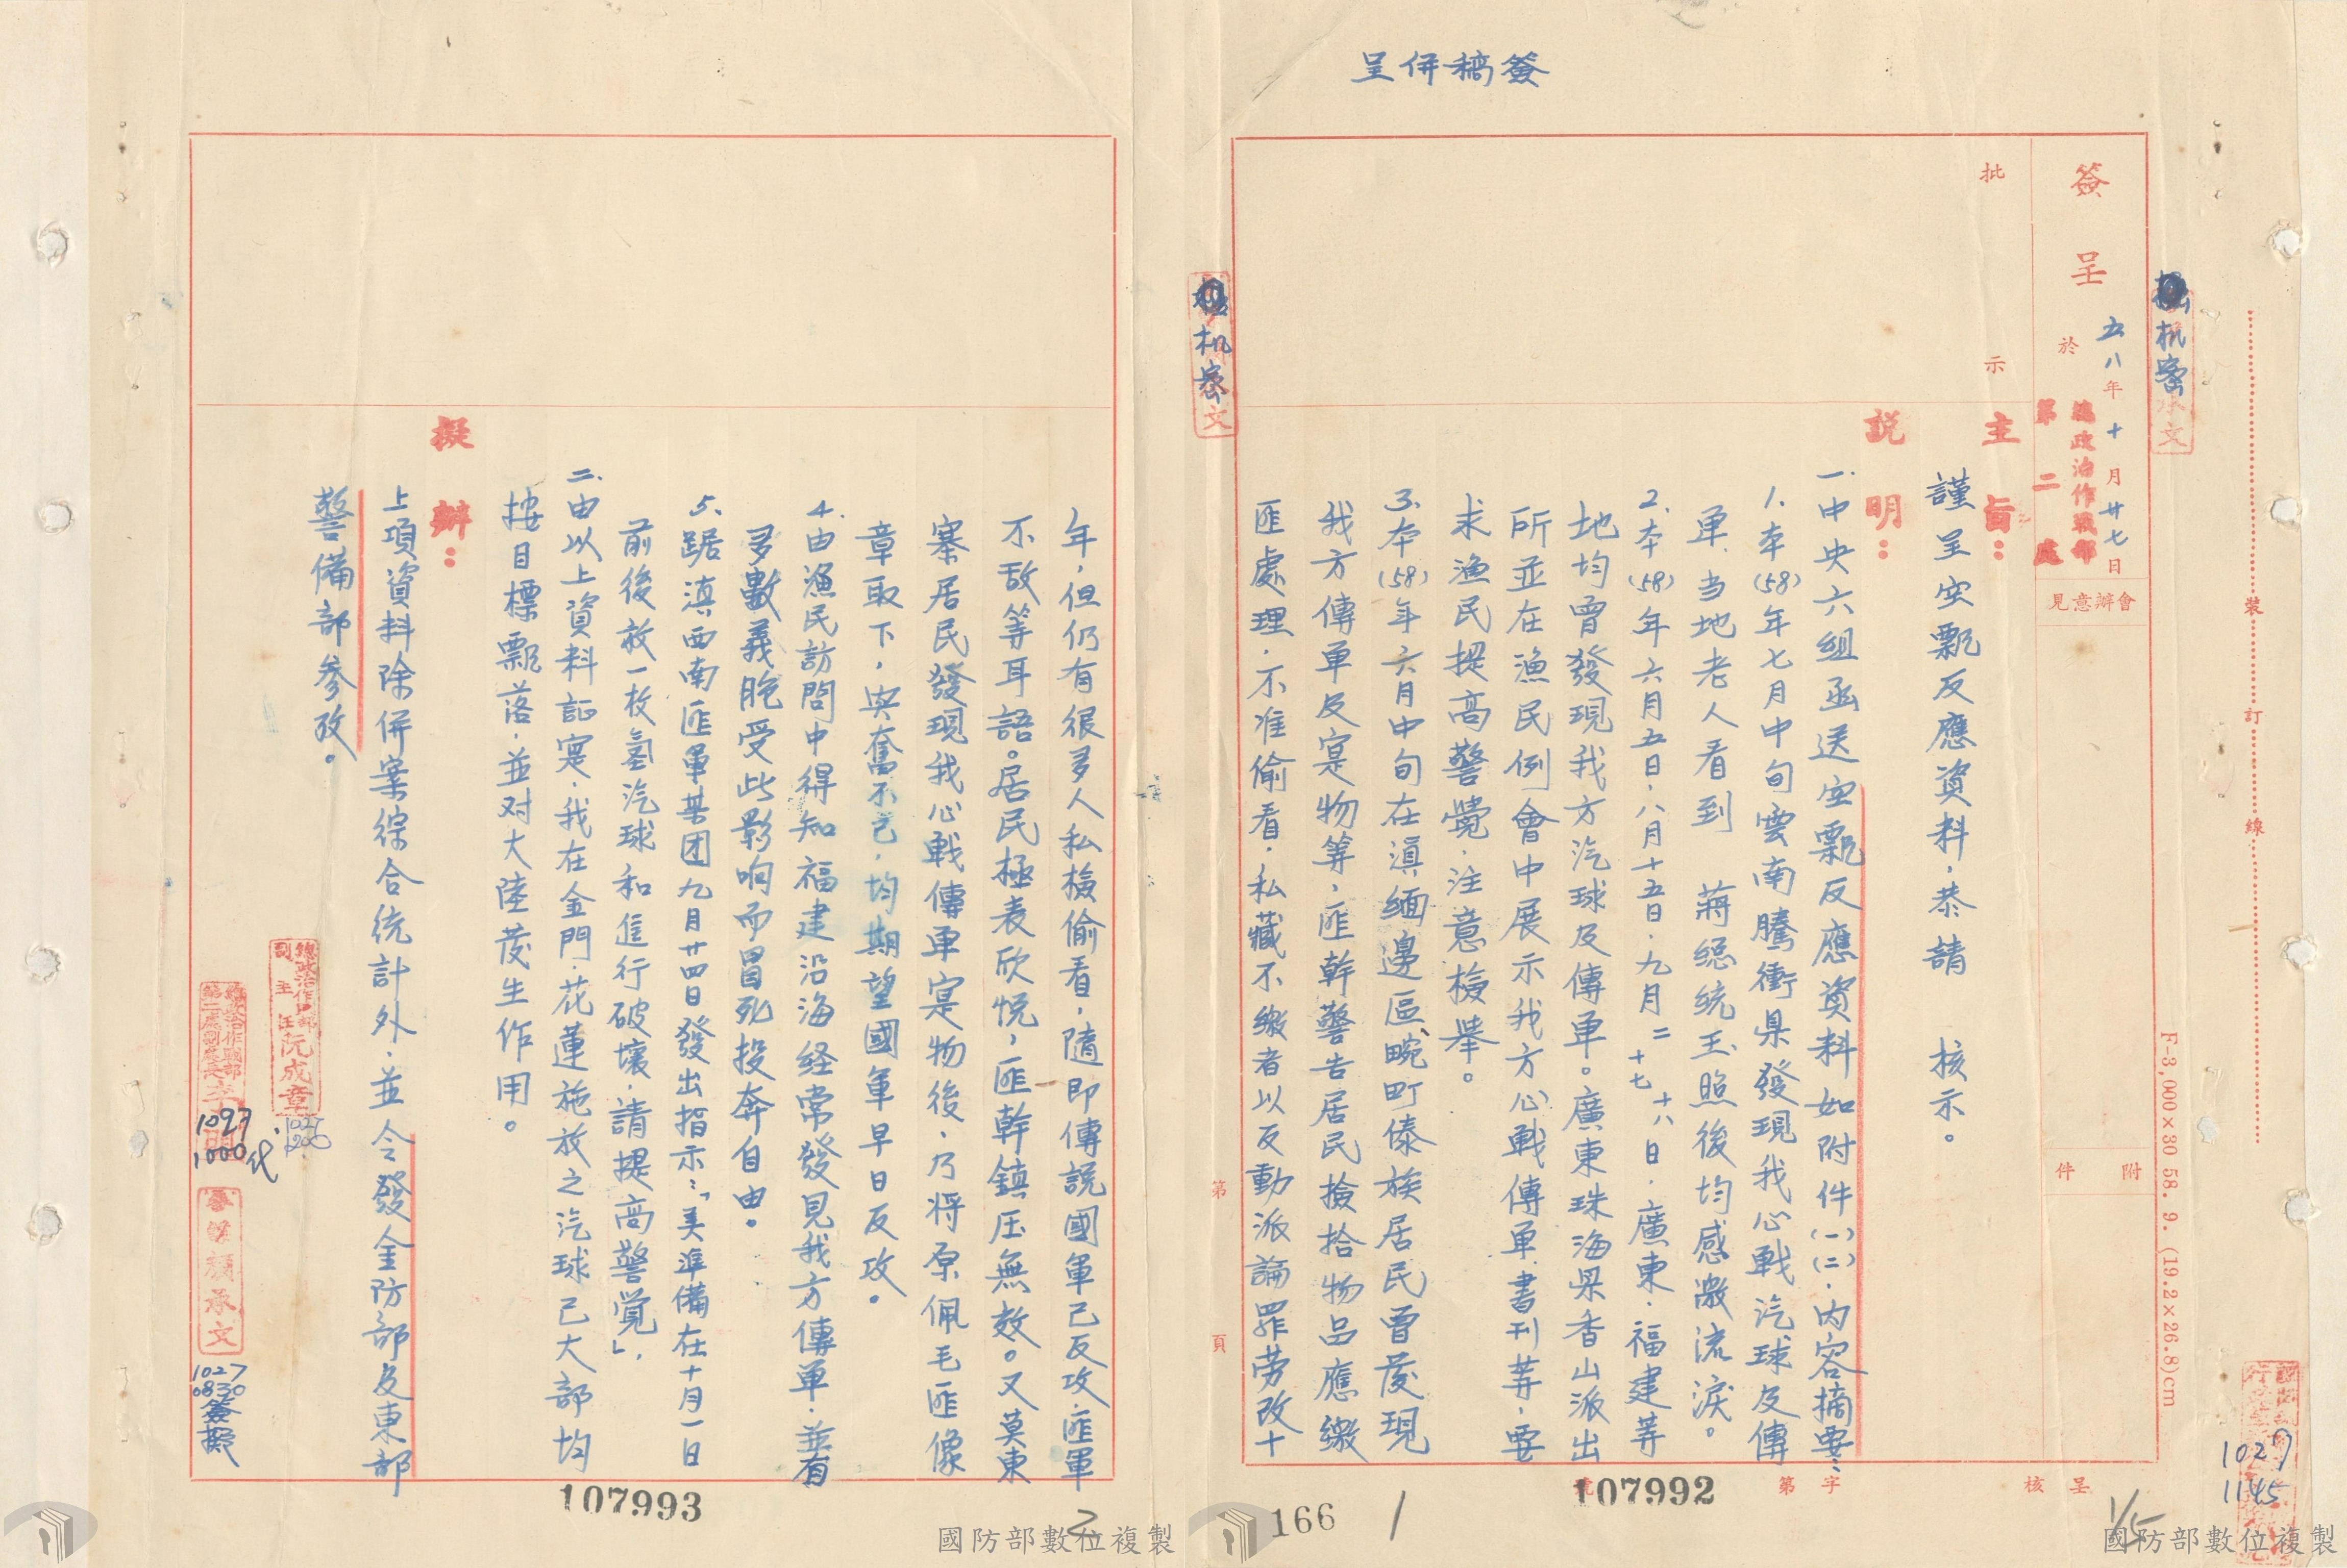 簽稿併呈
簽呈
五八年十月廿七日
於
總政治作戰部
第二處
機密
會辦意見
附件
批示
主旨：
謹呈空飄反應資料，恭請　核示。
説明：
一、中央六組函送空飄反應資料如附件(一)(二)，內容摘要：
1. 本(58)年七月中旬雲南騰衝県發現我心戰汽球及傳
單，当地老人看到　蔣總統玉照後均感激流淚。
2. 本(58)年六月五日，八月十五日，九月二十七十八日，廣東，福建等
地均曾發現我方汽球及傳單。廣東珠海県香山派出
所並在漁民例會中展示我方心戰傳單、書刊等，要
求漁民提高警覺，注意檢舉。
3. 本(58)年六月中旬在滇緬邊區畹町傣族居民曾發現
我方傳單及寔物等，匪幹警告居民撿拾物品應繳
匪處理，不准偷看，私藏不繳者以反動派論罪勞改十
第　頁
年，但仍有很多人私檢偷看，隨即傳説國軍已反攻，匪軍
不敌等耳語。居民極表欣悅，匪幹鎮压無效。又莫東
寨居民發現我心戰傳單寔物後，乃將原佩毛匪像
章取下，興奮不已，均期望國軍早日反攻。
4. 由漁民訪問中得知福建沿海経常發見我方傳單，並有
多數義胞受此影响而冒死投奔自由。
5. 踞滇西南匪軍某团九月廿四日發出指示：「美準備在十月一日
前後放一枚氫汽球和進行破壞，請提高警覚」，
二、由以上資料証寔，我在金門，花蓮施放之汽球已大部均
按目標飄落，並对大陸發生作用。
擬辦：
上項資料除併案綜合統計外，並令發金防部及東部
警備部參攷。
總政治作戰部
副主任阮成章
參謀顏承文
1027
1000代
1027
0830簽擬
1027
1145
呈核
字第　號
107992
107993
166
1
2
1/5
裝訂線
F-3,000×30 58. 9. (19.2×26.8)cm
機密
國防部數位複製
國防部數位複製